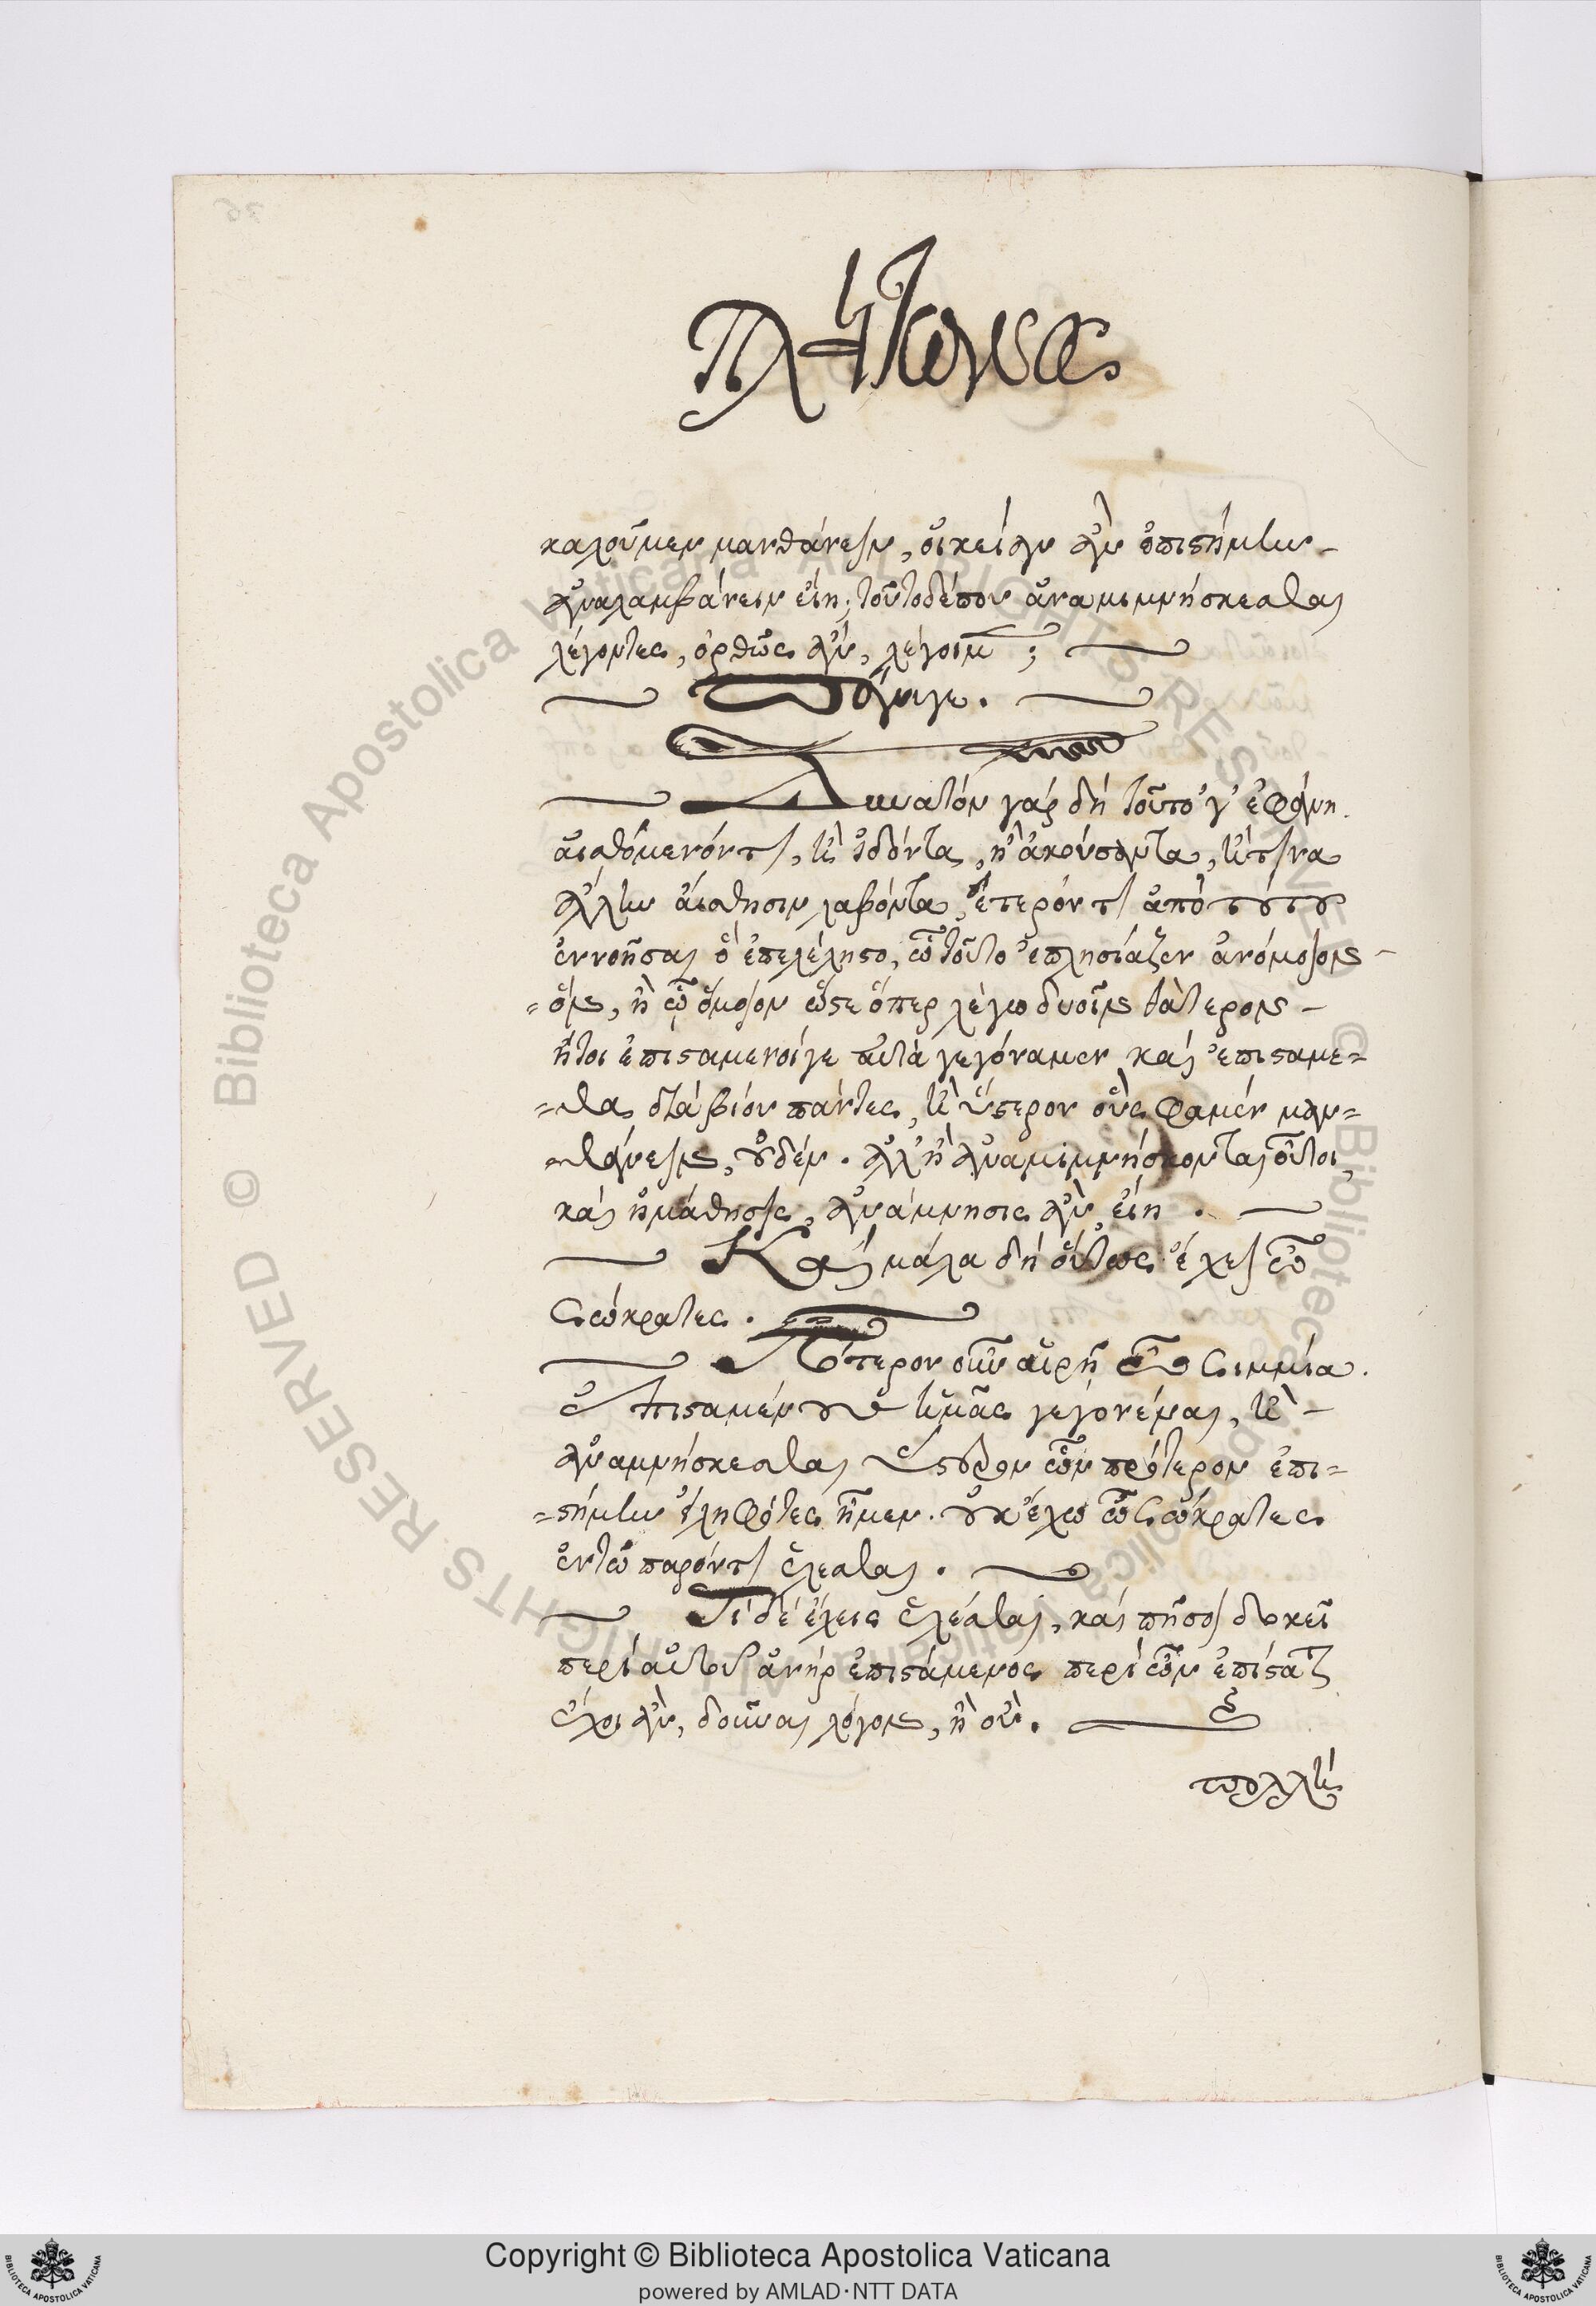 Πλάτωνος
καλοῦμεν μανθάνειν, οἰκείαν ἂν ἐπιστήμην
ἀναλαμβάνειν εἴη; τοῦτο δέ που ἀναμιμνήσκεσθαι
λέγοντες, ὀρθῶς ἂν, λέγοιμεν;
πάνυ γε.
Δυνατόν γάρ δή τοῦτό γ' ἐφάνη.
αἰσθόμενόν τι, ἢ ἰδόντα, ἢ ἀκούσαντα, ἤ τινα
ἄλλην αἴσθησιν λαβόντα, ἕτερόν τι ἀπὸ τούτου
ἐννοῆσαι ὃ ἐπελέληστο, ᾧ τοῦτο ἐπλησίαζεν ἀνόμοιον
=ὄν, ἢ ᾧ ὅμοιον ὥστε ὅπερ λέγω δυοῖν θάτερον
ἤτοι ἐπιστάμενοί γε αὐτὰ γεγόναμεν καί ἐπιστάμε=
=θα διά βίου πάντες, ἢ ὕστερον οὓς φαμέν μαν=
=θάνειν, οὐδέν. ἀλλ' ἢ ἀναμιμνήσκονται οὗτοι,
καί ἡ μάθησις, ἀνάμνησις ἂν εἴη.
Καί μάλα δή οὕτως ἔχει ὦ
Σώκρατες.
Πότερον οὖν αἱρῇ ὦ Σιμμία.
ἐπισταμένους ἡμᾶς γεγονέναι, ἢ
ἀναμνήσκεσθαι ὕστερον ὧν πρότερον ἐπι=
=στήμην εἰληφότες ἦμεν. οὐκ ἔχω ὦ Σώκρατες
ἐν τῷ παρόντι ἑλέσθαι.
Τί δέ ἔχεις ἑλέσθαι, καί πῆ σοι δοκεῖ
περί αὐτοῦ ἀνήρ ἐπιστάμενος περί ὧν ἐπίσταται
ἔχοι ἂν, δοῦναι λόγον, ἢ οὔ.
πολλή
Copyright © Biblioteca Apostolica Vaticana
powered by AMLAD·NTT DATA